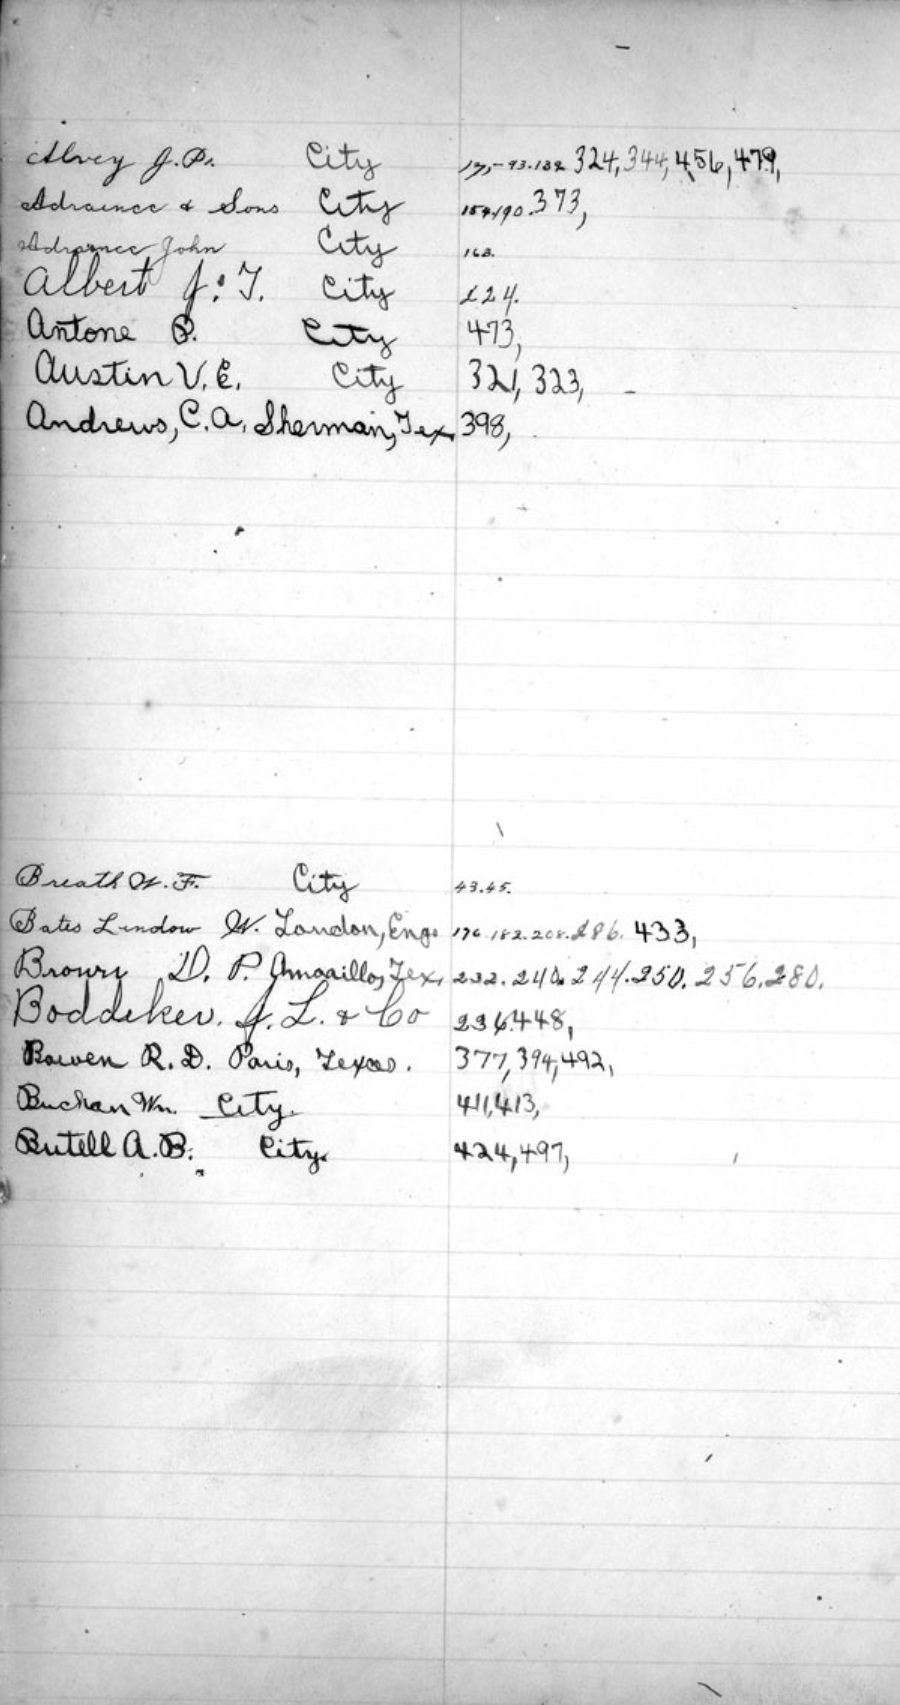 Alvey J. P. City 17,-93.132 324, 344, 456, 479,
Adraince & Sons City 154.190. 373,
Adraince John City 163.
Albert J. T. City 224.
Antone P. City 473,
Austin V. E. City 321, 323,
Andrews, C. A. Sherman, Tex 398,
Breath W. F. City 43.45.
Bates Lindow W. London, Eng. 176.182.208.286. 433,
Brown D. P. Amarillo, Tex, 232. 240. 244. 250. 256. 280.
Boddeker. J. L. & Co 236.448,
Bowen R. D. Paris, Texas. 377, 394, 492,
Buchan Wm. City. 411, 413,
Butell A. B. City. 424, 497,